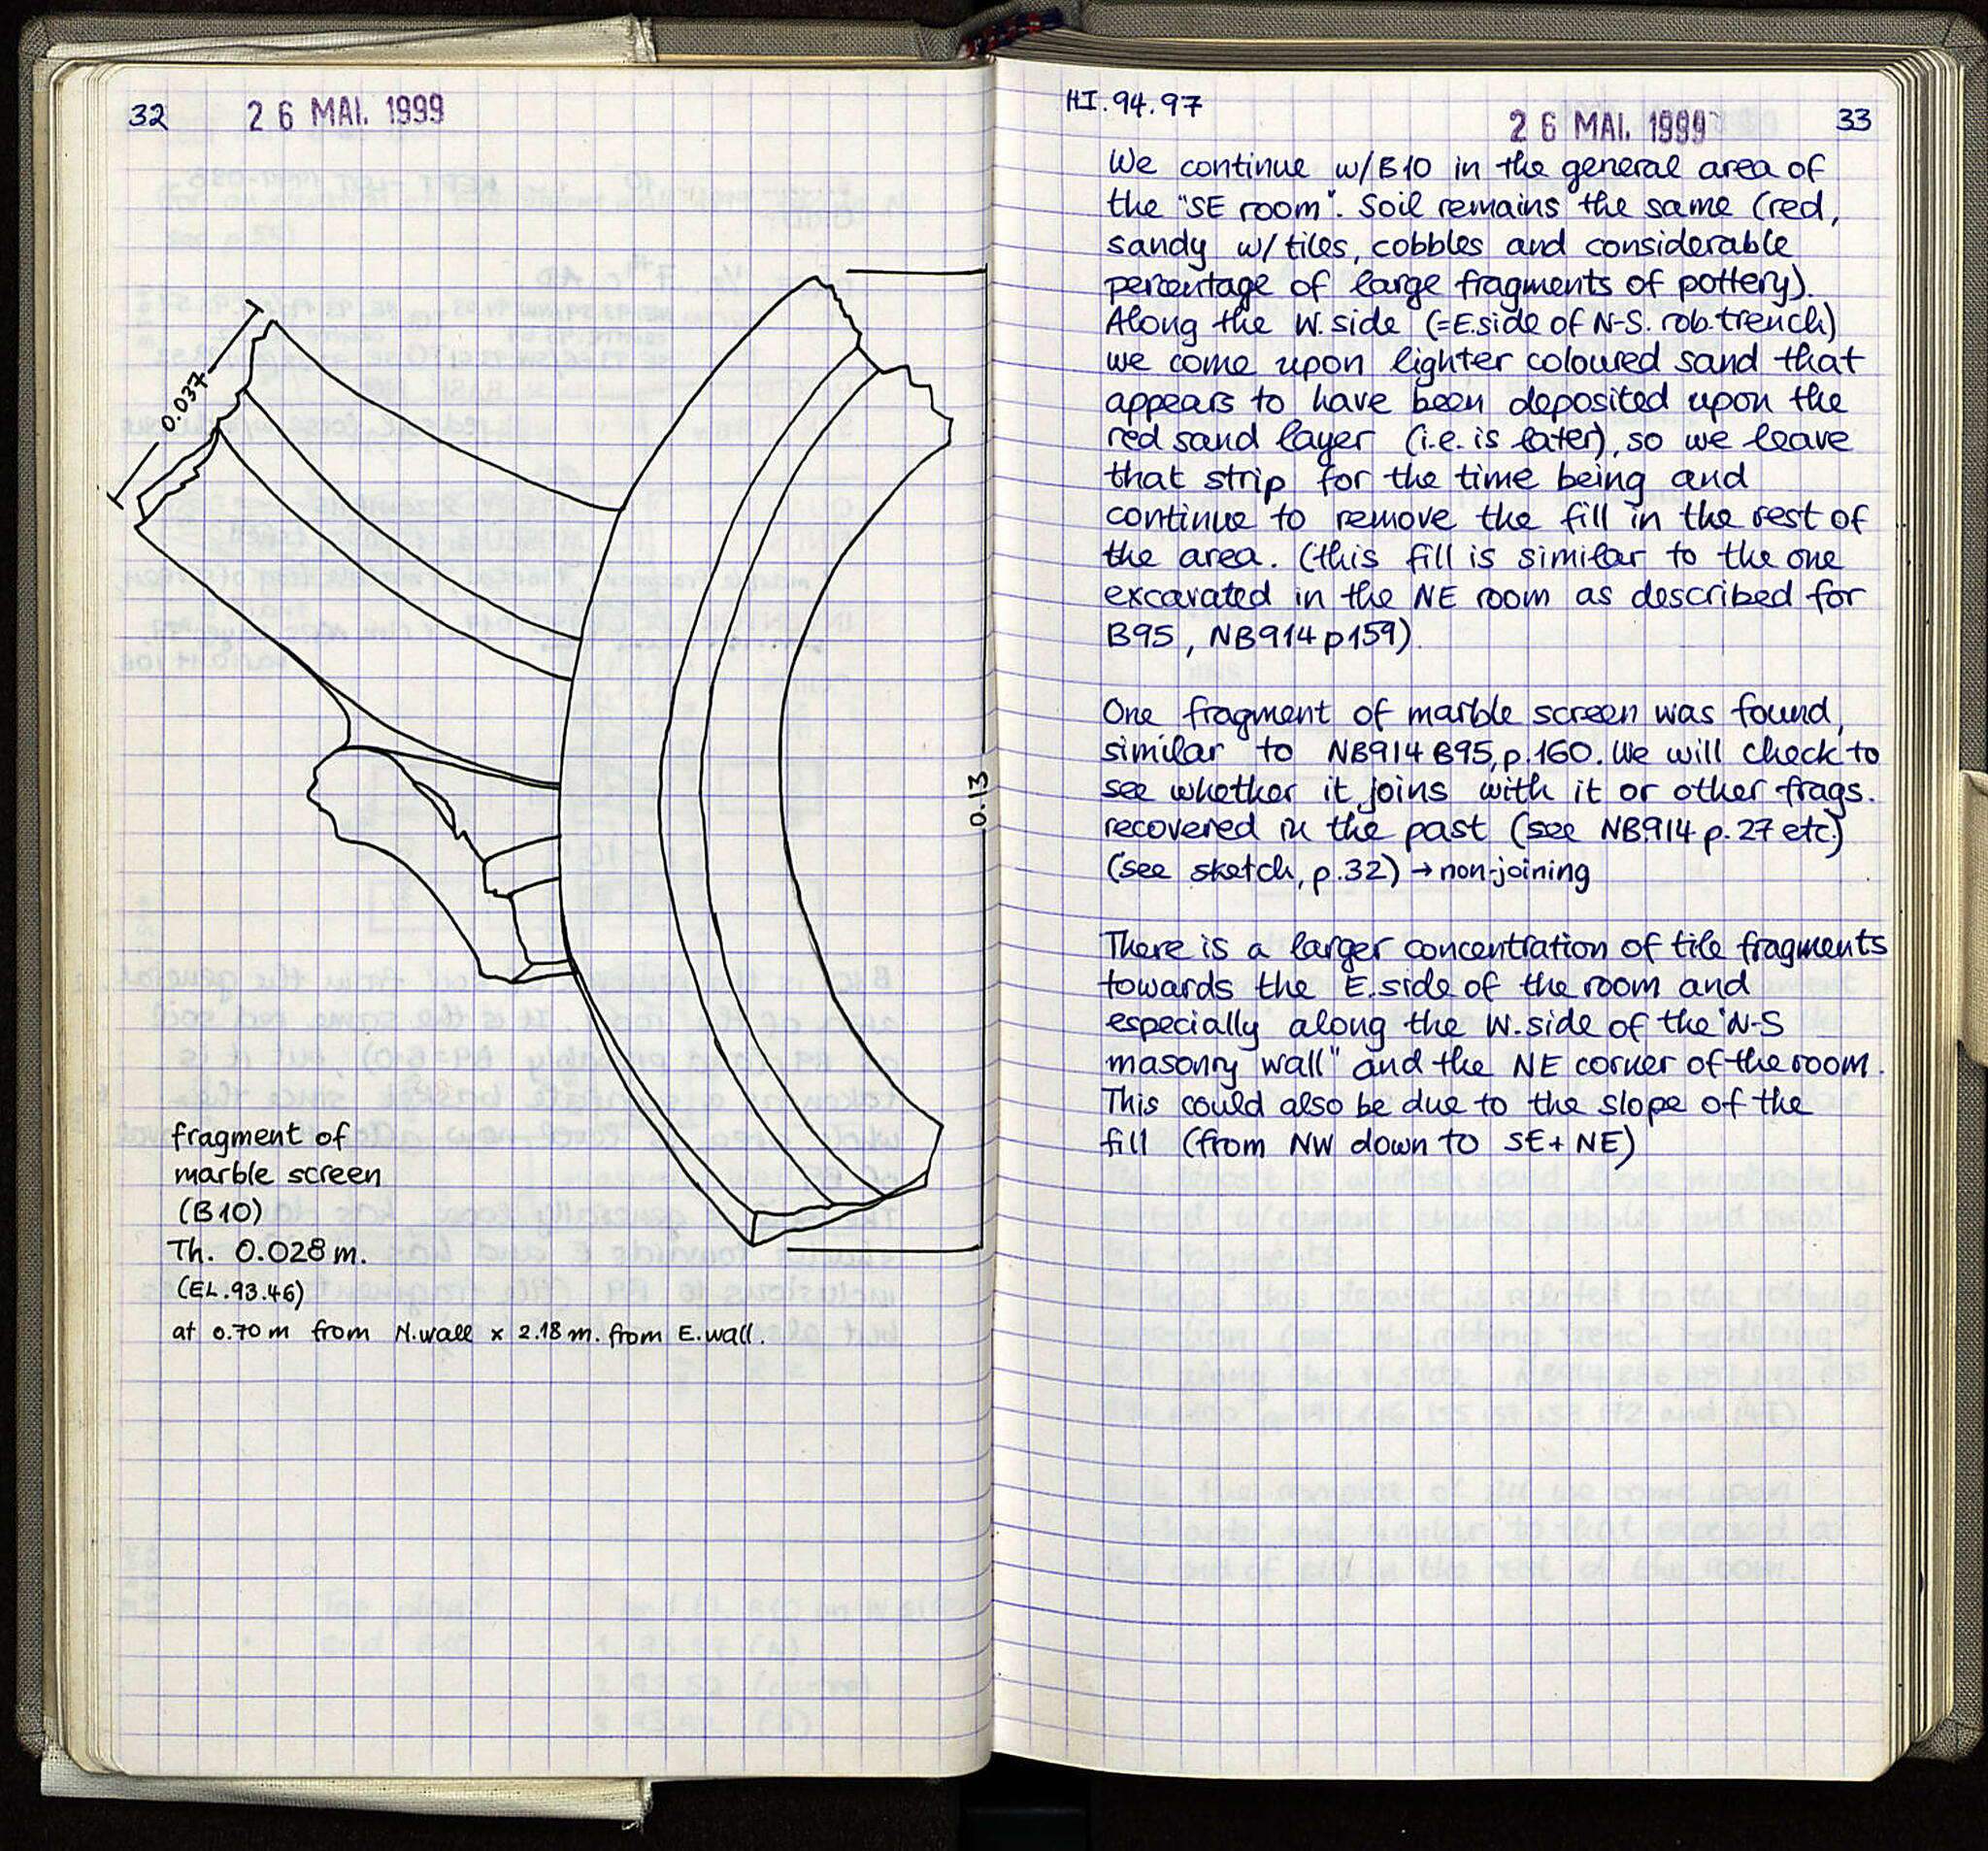 32
26 MAI. 1999
0.037
0.13
fragment of
marble screen
(B10)
Th. 0.028 m.
(EL.93.46)
at 0.70 m from N.wall x 2.18 m. from E.wall.
HI.94.97
26 MAI. 1999
33
We continue w/B10 in the general area of
the "SE room". Soil remains the same (red,
sandy w/tiles, cobbles and considerable
percentage of large fragments of pottery).
Along the W. side (=E.side of N-S. rob.trench)
we come upon lighter coloured sand that
appears to have been deposited upon the
red sand layer (i.e. is later), so we leave
that strip for the time being and
continue to remove the fill in the rest of
the area. (this fill is similar to the one
excavated in the NE room as described for
B95, NB914 p159).
One fragment of marble screen was found,
similar to NB914 B95, p.160. We will check to
see whether it joins with it or other frags.
recovered in the past (see NB914 p.27 etc.)
(see sketch, p.32) → non-joining
There is a larger concentration of tile fragments
towards the E.side of the room and
especially along the W.side of the "N-S
masonry wall" and the NE corner of the room.
This could also be due to the slope of the
fill (from NW down to SE+NE)